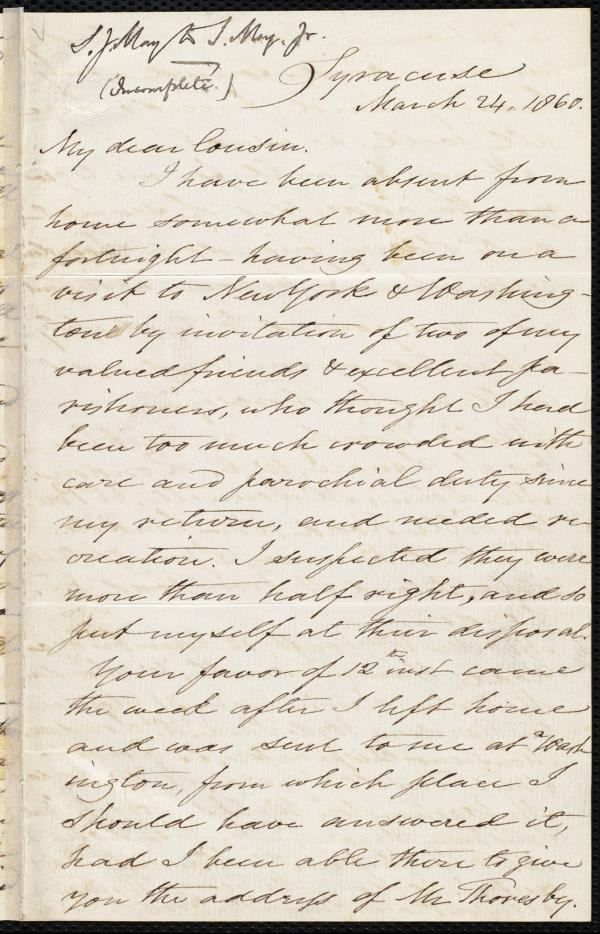 S. J. May to S. May. Jr.
(Incomplete.)
Syracuse
March 24, 1860.
My dear Cousin.
I have been absent from
home somewhat more than a
fortnight – having been on a
visit to New York & Washing-
ton by invitation of two of my
valued friends & excellent pa-
rishoners, who thought I had
been too much crowded with
care and parochial duty since
my return, and needed re-
creation. I suspected they were
more than half right, and so
put myself at their disposal.
Your favor of 12th inst came
the week after I left home
and was sent to me at Wash
ington, from which place I
should have answered it,
had I been able there to give
you the address of Mr Thoresby.